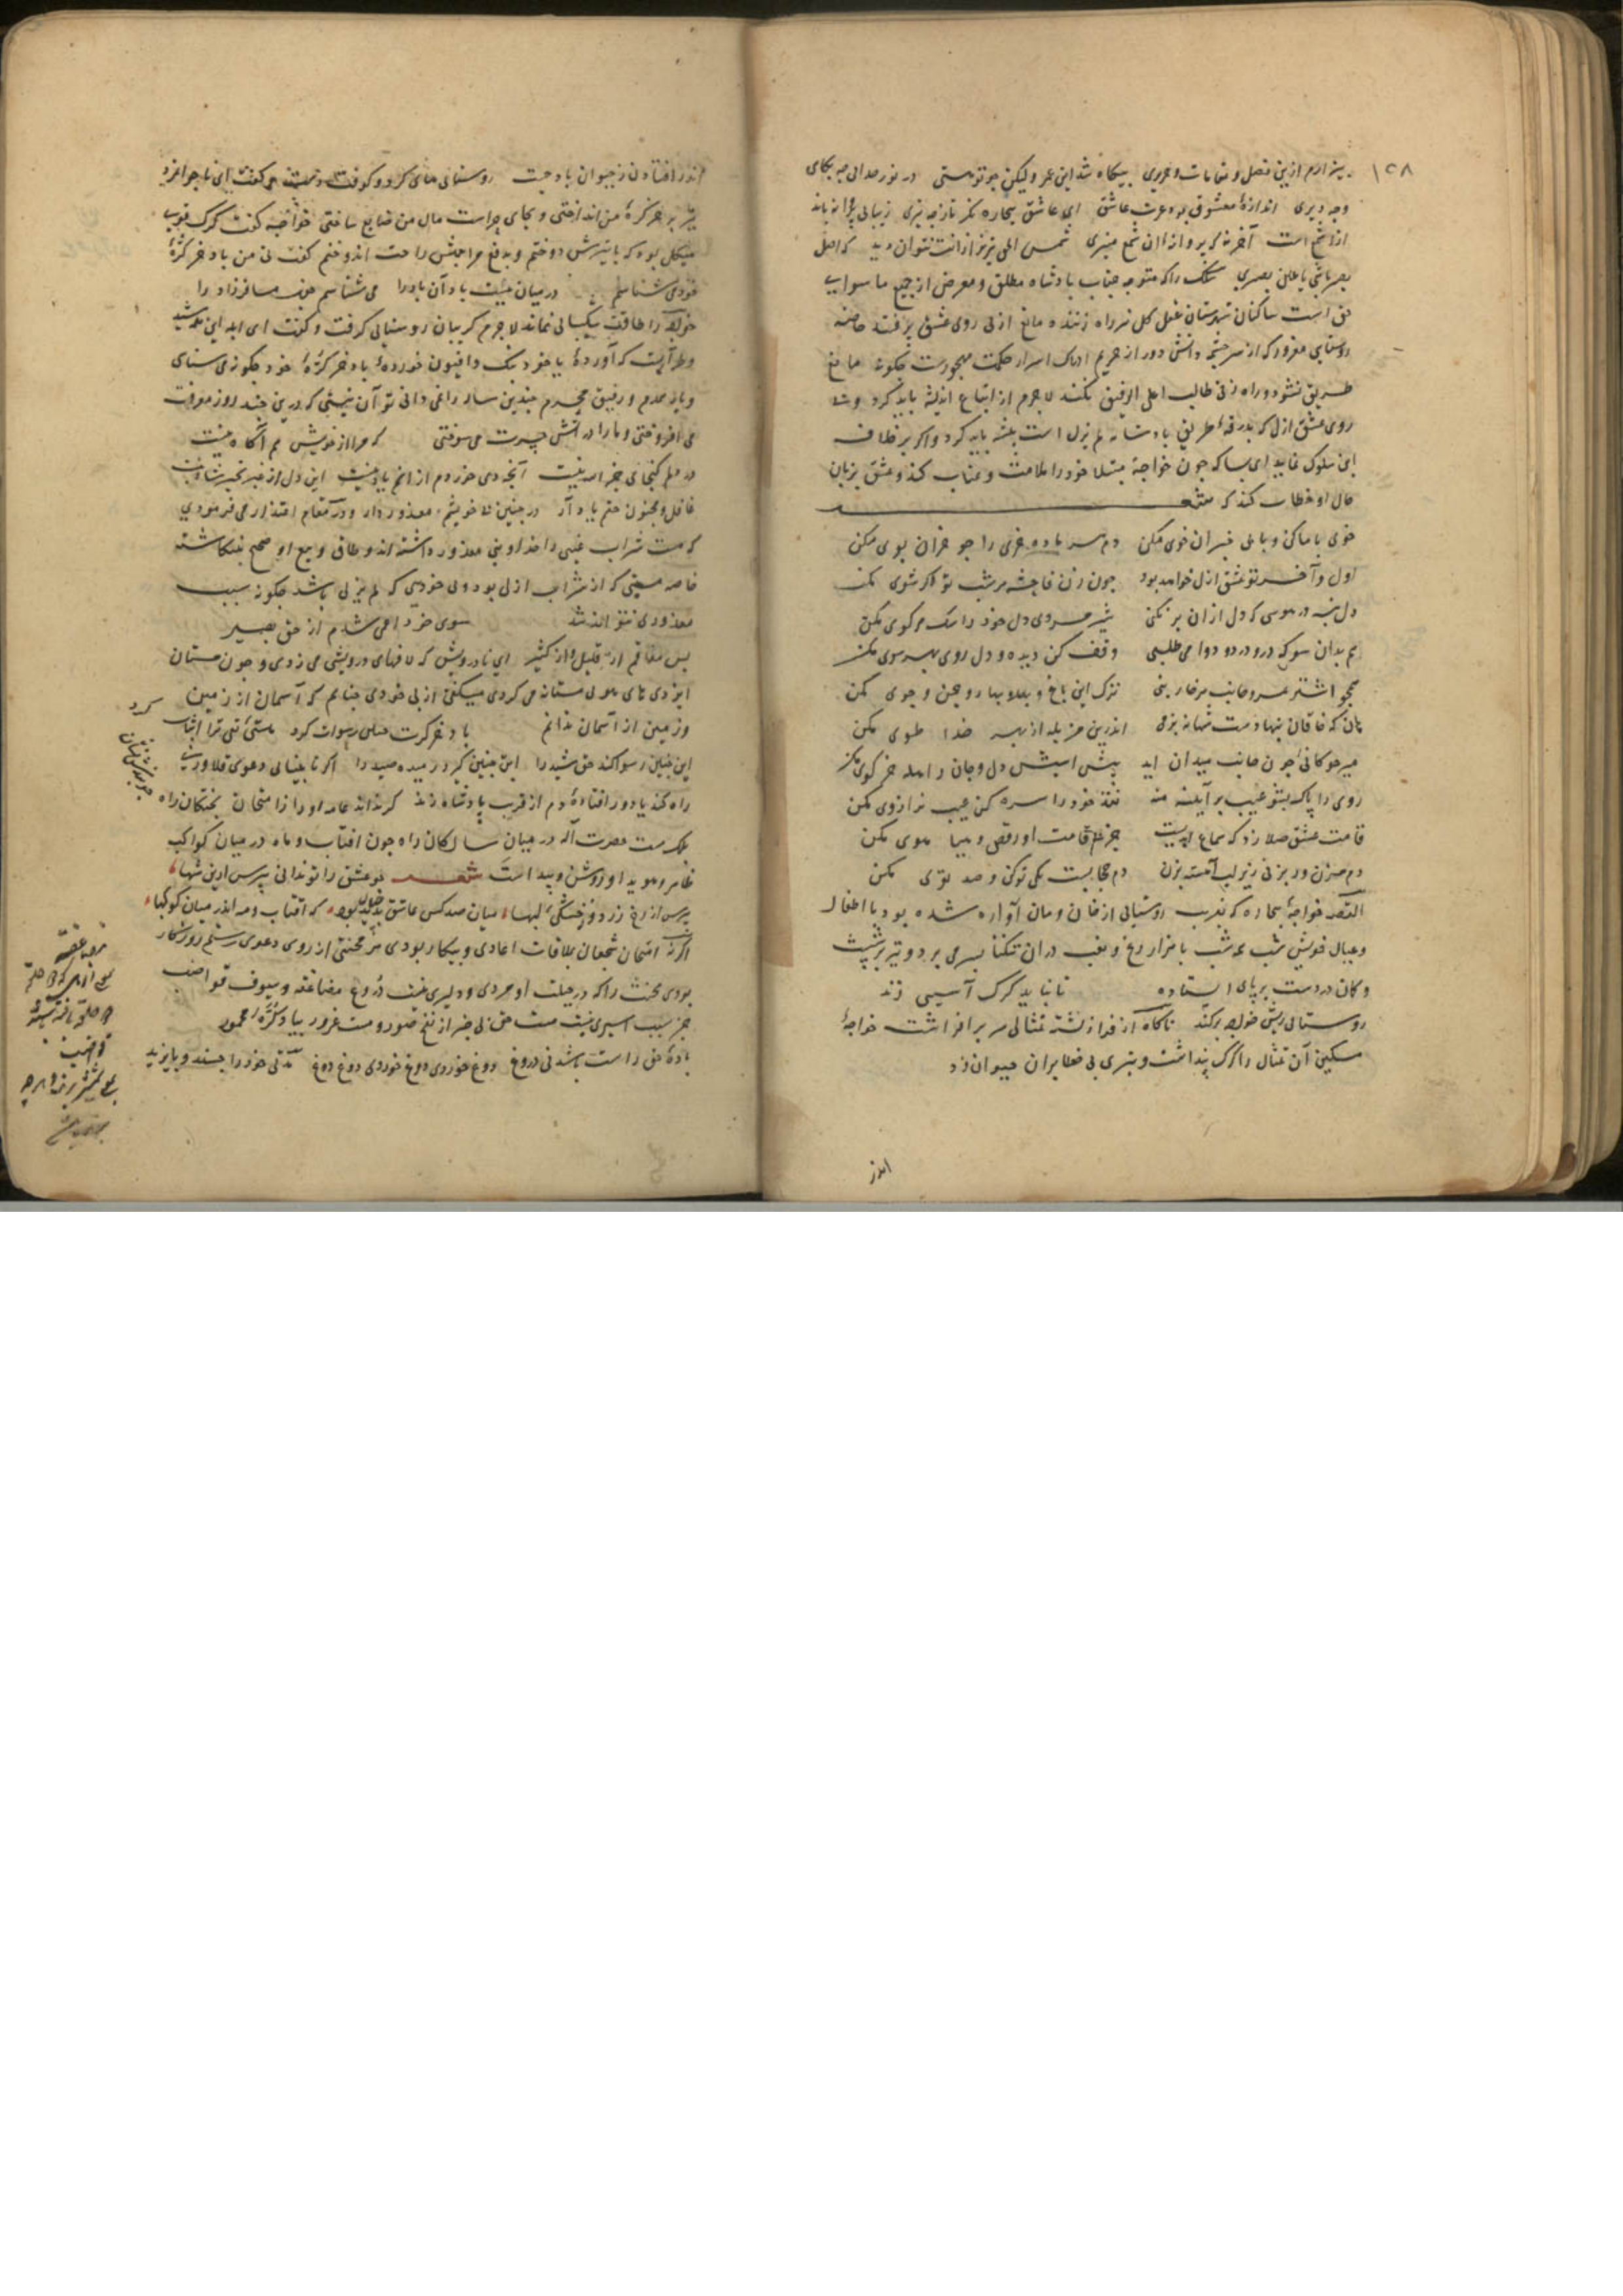 ۱۵۸
بیزارم ازین فضل و مقامات و حریری بیگاه شد این عمر ولیکن چو تو هستی در نور خدایی چه بگاهی
وچه دیری اندازهٔ معشوق بود عزت عاشق ای عاشق بیچاره نگر تا ز چه تیری زیبایی پروانه باندازهٔ
از شمع است آخر نه که پروانه این شمع منیری شمس الحق تبریز ازانت نتوان دید که اصل
بصر باشی یا عین بصیری سالک را که متوجه جناب پادشاه مطلق و معرض از جمیع ما سوای
حق است ساکنان شهرستان عقل کل نمی راه زننده و مانع از لی روی عشق
روستایی مغرور که از سر چشمهٔ دانش دور از حریم ادراک اسرار حکمت مهجورست چگونه مانع
طریق نشود و راه زنی طالب اعلی الرفیق نکند لاجرم از اتباع باید کرد
روی عشق ازل که بدرقهٔ طریق پادشاه لم یزل است پیشه باید کرد و اگر بر خلاف
این سلوک نماید ای بسا که چون خواجهٔ مبتلا خود را ملامت و عتاب کند و عشق بزبان
حال او خطاب کند که شعر
خوی با ما کن و با بی خبران خوی مکن دم هر ماده خری را چو خران بوی مکن
اول و آخر تو عشق ازل خواهد بود چون زن فاحشه هر شب تو دگر شوی مکن
دل بنه در هوسی که دل ازان بر نکنی شیر مردی دل خود را سگ هر کوی مکن
هم بدان سو که گه درد دوا می طلبی وقف کن دیده و دل روی بهر سوی مکن
همچو اشتر بمرو جانب هر خار بنی ترک این باغ و بهار و چمن و جوی مکن
هان که خاقان بنهادست شهانه بزمی اندرین مزبله از بهر خدا طوی مکن
میر چوگانی چون جانب میدان آید پیش اسبش دل و جان را هله جز گوی مکن
روی را پاک بشو عیب بر آیینه منه نقد خود را سره کن عیب ترازوی مکن
قامت عشق صلا زد که سماع ابدیست جز پی قامت او رقص و هیا هوی مکن
دم مزن ور بزنی زیر لب آهسته بزن دم حجابست یکی توکن و صد توی مکن
القصه خواجهٔ بیچاره که بفریب روستایی از خان و مان آواره شده بود با اطفال
و عیال خویش شب همه شب با هزار رنج و تعب دران تنگنا بسر می برد و تیر در شست
و کمان در دست بر پای ایستاده تا نباید گرگ آسیبی زند
روستایی ریش خواجه برکند ناگاه از فراز پشته تمثالی سر برافراشت خواجهٔ
مسکین آن تمثال را گرگ پنداشت و تیری بی خطا بران حیوان زد
اندر
اندر افتادن ز حیوان باد جست روستایی های کرد و کوفت دست می گفت ای ناجوانمرد
تیر بر خر کرهٔ من انداختی و بجای حراست مال من ضایع ساختی خواجه گفت گرگ
هیکل بود که با تیرش دوختم و بدفع مزاحمتش راحت اندوختم گفت نی من باد خر کرهٔ
خود می شناسم در میان بیست باد آن باد را می شناسم چون مسافر زاد را
خواجه را طاقت شکیبایی نماند لاجرم گریبان روستایی گرفت و گفت ای ابله این چه شید
و طراریست که آوردهٔ یا خود بنگ و افیون خوردهٔ باد خر کرهٔ خود چگونه می شناسی
و یار همدم و رفیق محرم چندین ساله را نمی دانی تو آن نیستی که درین چند روز معرفت
می افروختی و ما را در آتش حیرت می سوختی که مرا از خویش هم آگاه نیست
در دلم گنجای جز الله نیست آنچه دی خوردم از انم یاد نیست این دل از غیر تحیر شاد نیست
عاقل و مجنون حقم یاد آر در چنین بی خویشیم معذور دار و در آن مقام اعتذار می فرمودی
که مست شراب غیبی را خداوندی معذور داشته اند و طلاق و بیع او صحیح نینگاشته
خاصه مستی که از شراب ازلی بود و بی خودی که لم یزلی باشد چگونه سبب
معذوری نتواند شد سوی خود اعمی شدم از حق بصیر
پس معافم از قلیل و از کثیر ای نادرویش که لافهای درویشی می زدی و چون مستان
ایزدی های هوی مستانه می کردی میگفتی از بی خودی چنانم که آسمان از زمین
وز زمین از آسمان ندانم باد خر کرهٔ چنین رسوات کرد هستی نفی ترا اثبات کرد
این چنین رسوا کند حق شید را این چنین گیرد رمیده صید را اگر نا بینایی دعوی قلاوزی
راه کند یا دور افتادهٔ دم از قرب پادشاه زند گر نداند عامه او را ز امتحان پختگان راه
جویندش نشان
ملک مست حضرت اله در میان سالکان راه چون آفتاب و ماه در میان کواکب
ظاهر و هویدا و روشن و پیداست شعر تو عشق را تو ندانی بپرس ازین شبها
بپرس از رخ زرد و ز خشکی لبها میان صد کس عاشق بدید بود که آفتاب و مه اندر میان کوکبها
اگر نه امتحان شجعان بملاقات اعادی و پیکار بودی هر مخنثی از روی دعوی رستم روزگار
بودی مخنث را که در جبلت او مردی و دلیری نیست دروغ مضاعفه و سیوف قواضب
جز سبب اسیری نیست مست حق بی خبر از نفخ صور و مست غرور بباد کره مخمور
بادهٔ حق راست باشد نی دروغ دوغ خوردی دوغ خوردی دوغ دوغ مدتی خود را جنید و بایزید